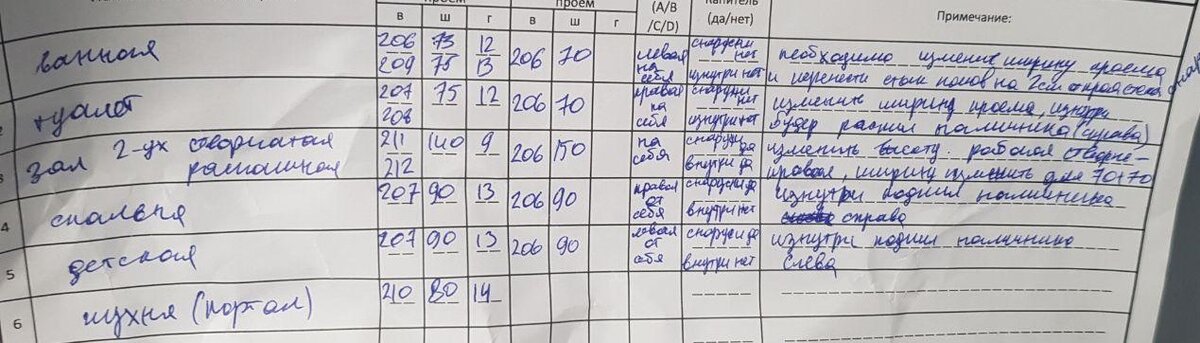 проем проем (A/B /C/D) Капитель (да/нет) Примечание:
в ш г в ш г
ванная 206 73 12 206 70 левая на себя снаружи нет необходимо изменить ширину проема
209 75 13 изнутри нет и перенести стык полов на 2см от края стены
туалет 207 75 12 206 70 правая на себя снаружи нет изменить ширину проема, изнутри
208 изнутри нет будет распил наличника (справа)
3 зал 2-ух створчатая 211 140 9 206 150 на себя снаружи да изменить высоту. рабочая створка -
распашная 212 внутри да правая, ширину изменить для 70+70
4 спальня 207 90 13 206 90 правая от себя снаружи да изнутри подпил наличника
внутри нет справа
5 детская 207 90 13 206 90 левая от себя снаружи да изнутри подпил наличника
внутри нет слева
6 кухня (портал) 210 80 14